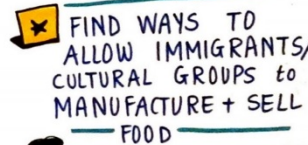 FIND WAYS TO
ALLOW IMMIGRANTS/
CULTURAL GROUPS to
MANUFACTURE + SELL
FOOD